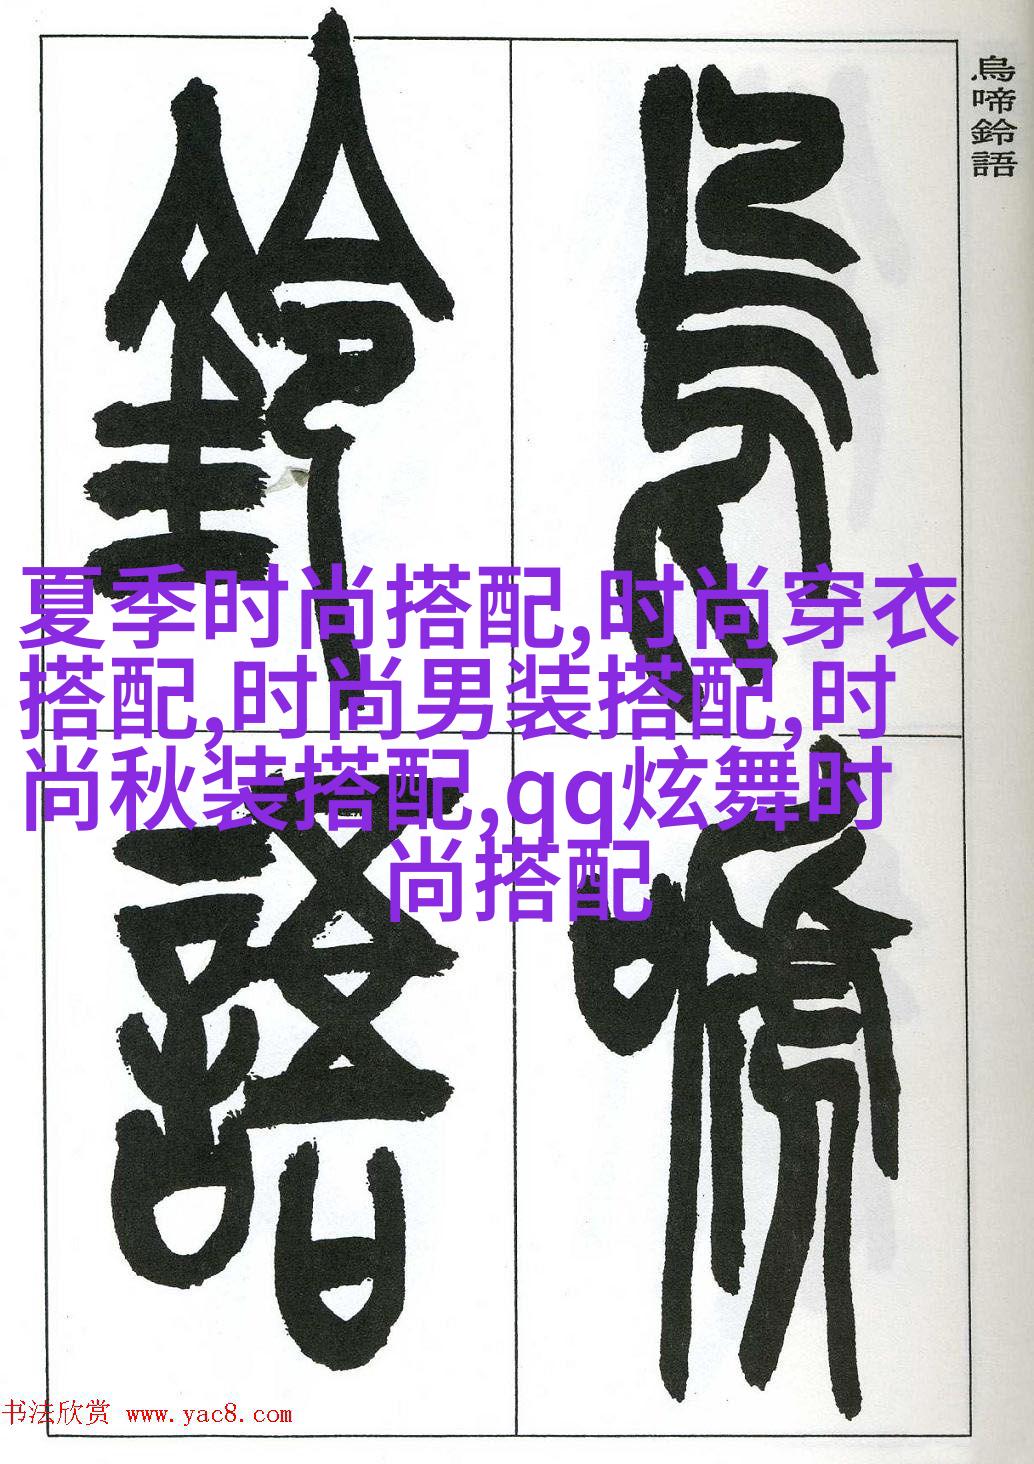 鳥啼鈴語
鳥啼
鈴語
夏季时尚搭配,时尚穿衣
搭配,时尚男装搭配,时
尚秋装搭配,qq炫舞时
尚搭配
书法欣赏 www.yac8.com